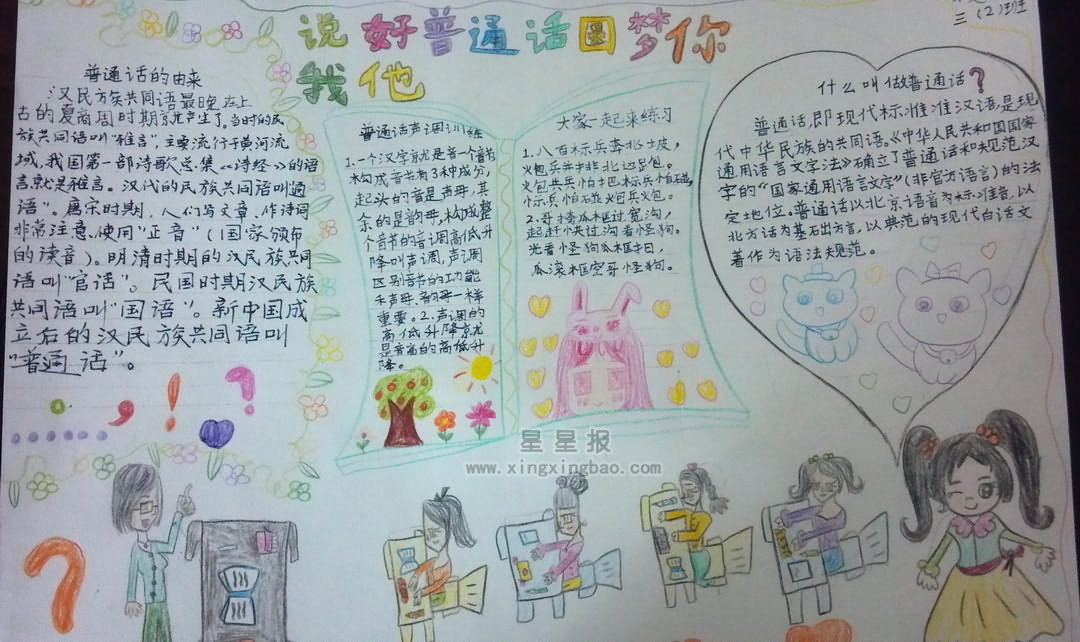 说好普通话圆梦你
我他
三(2)班
普通话的由来
汉民族共同语最晚在上
古的夏商周时期就产生了。当时的民
族共同语叫“雅言”,主要流行于黄河流
域,我国第一部诗歌总集《诗经》的语
言就是雅言。汉代的民族共同语叫通
语”。唐宋时期,人们写文章、作诗词
非常注意、使用“正音”(国家颁布
的读音)。明清时期的汉民族共同
语叫“官话”。民国时期汉民族
共同语叫“国语”。新中国成
立后的汉民族共同语叫
“普通话”。
普通话声调训练
1.一个汉字就是音一个音节
构成音节有3种成分,
起头的音是声母,其
余的是韵母,构成整
个音节的音调高低升
降叫声调,声调
区别音节的功能
千声母、韵母一样
重要。2.声调的
高低升降就
是音高的高低升
降。
大家一起来练习
1.八百标兵奔北坡,
炮兵并排北边跑。
2.
起赶快过沟看怪狗。
光看怪狗瓜框扣,
瓜滚框空哥怪狗。
什么叫做普通话?
普通话,即现代标准准汉语,是现
代中华民族的共同语。《中华人民共和国国家
通用语言文字法》确立了普通话和规范汉
字的“国家通用语言文字”(非官方语言)的法
定地位。普通话以北京语音为标准音,以
北方话为基础出方言,以典范的现代白话文
著作为语法规范。
星星报
www.xingxingbao.com